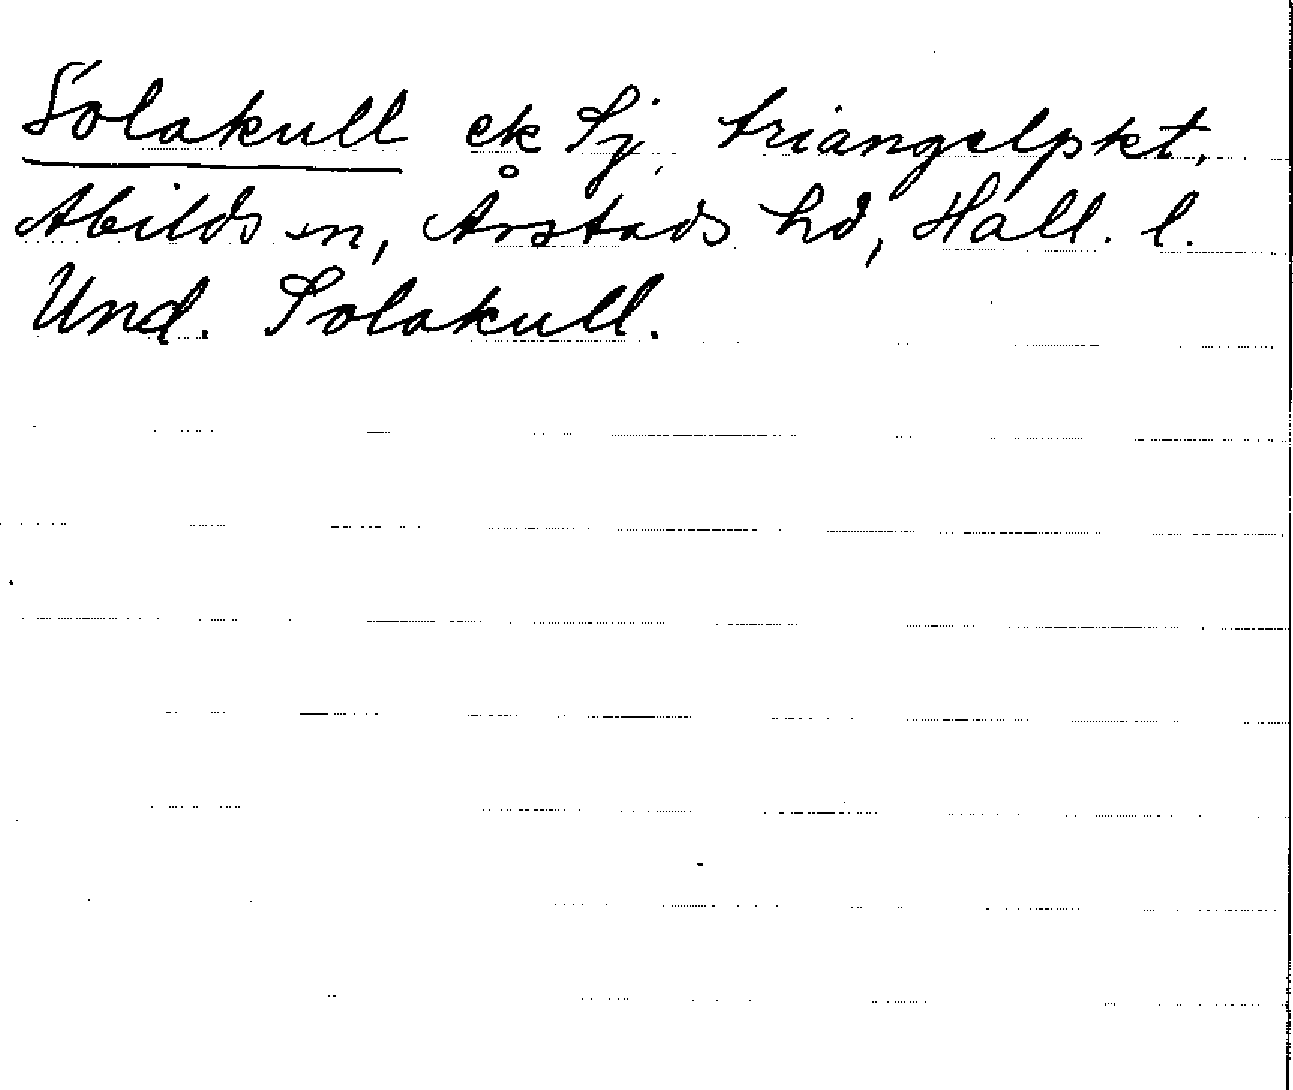 Solakull ek Sj, triangelpkt,
Abilds sn, Årstads hd, Hall. l.
Und. Solakull.